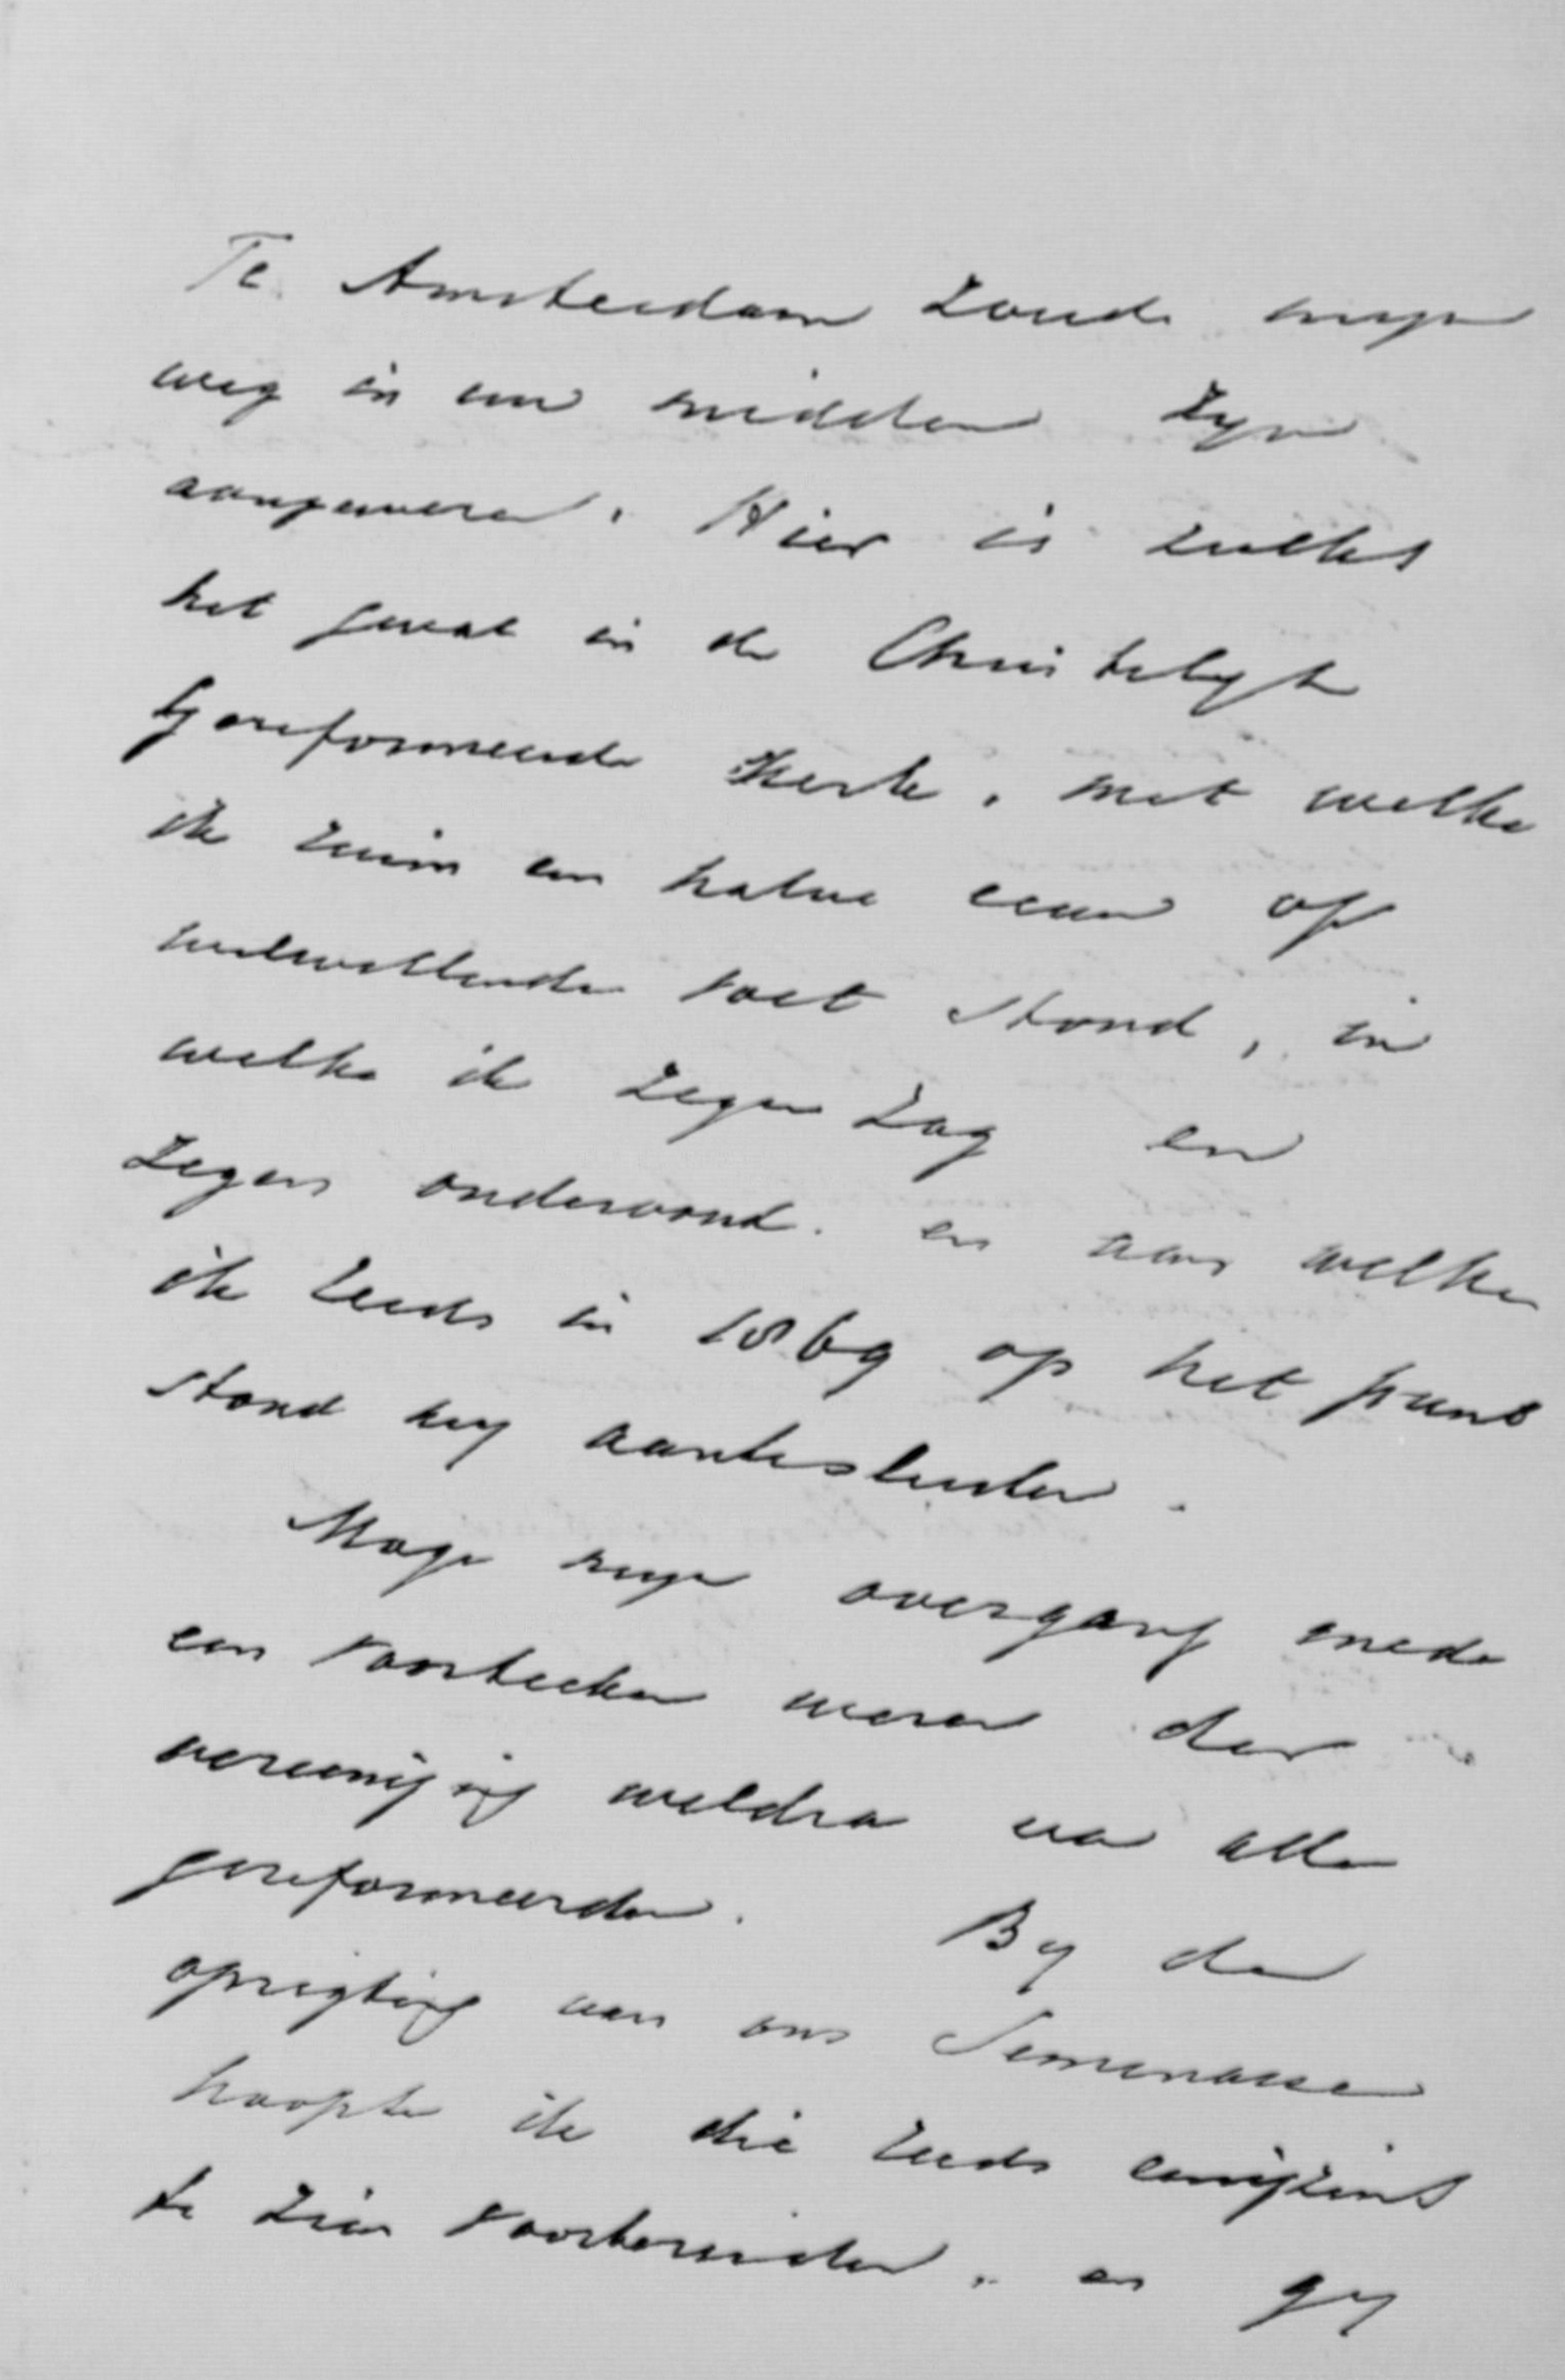 Te Amsterdam zoude myn
weg in uw midden zyn
aangewezen. Hier is zulks
het geval in de Christelyke
Gereformeerde Kerk, met welke
ik ruim een halve eeuw op
welwillende voet stond, in
welke ik zegen zag en
zegen ondervond. en aan welke
ik reeds in 1869 op het punt
stond my aantesluiten.
Moge myn overgang mede
een voorteeken wezen der
vereeniging weldra van alle
gereformeerden. By de
oprigting van ons Seminarie
hoopte ik die reeds eenigzins
te zien voorbereiden, en gy